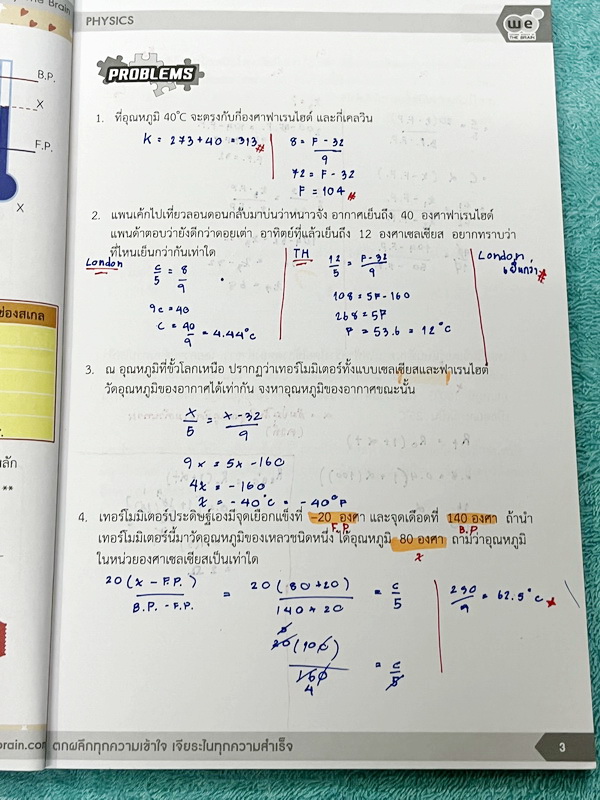 the Brain
PHYSICS
we
THE BRAIN
B.P.
X
F.P.
X
PROBLEMS
1. ที่อุณหภูมิ 40°C จะตรงกับกี่องศาฟาเรนไฮต์ และกี่เคลวิน
K = 273+40 = 313
8 = F - 32
9
72 = F - 32
F = 104
2. แพนเค้กไปเที่ยวลอนดอนกลับมาบ่นว่าหนาวจัง อากาศเย็นถึง 40 องศาฟาเรนไฮต์
แพนด้าตอบว่ายังดีกว่าดอยเต่า อาทิตย์ที่แล้วเย็นถึง 12 องศาเซลเซียส อยากทราบว่า
ที่ไหนเย็นกว่ากันเท่าใด
London
c/5 = 8/9
9c = 40
c = 40/9 = 4.44°c
TH
12/5 = F-32/9
108 = 5F - 160
268 = 5F
F = 53.6 = 12°c
London
เย็นกว่า
ช่องสเกล
3. ณ อุณหภูมิที่ขั้วโลกเหนือ ปรากฏว่าเทอร์โมมิเตอร์ทั้งแบบเซลเซียสและฟาเรนไฮต์
วัดอุณหภูมิของอากาศได้เท่ากัน จงหาอุณหภูมิของอากาศขณะนั้น
x/5 = x-32/9
9x = 5x - 160
4x = -160
x = -40°c = -40°F
**
4. เทอร์โมมิเตอร์ประดิษฐ์เองมีจุดเยือกแข็งที่ -20 องศา และจุดเดือดที่ 140 องศา ถ้านำ
F.P. B.P
เทอร์โมมิเตอร์นี้มาวัดอุณหภูมิของเหลวชนิดหนึ่ง ได้อุณหภูมิ 80 องศา ถามว่าอุณหภูมิ
x
ในหน่วยองศาเซลเซียสเป็นเท่าใด
20(x - F.P.) / B.P. - F.P. = 20(80+20) / 140+20 = c/5
20(100) / 160 = c/5
5
4
= 62.5°c
brain.com ตกผลึกทุกความเข้าใจ เจียระไนทุกความสำเร็จ
3